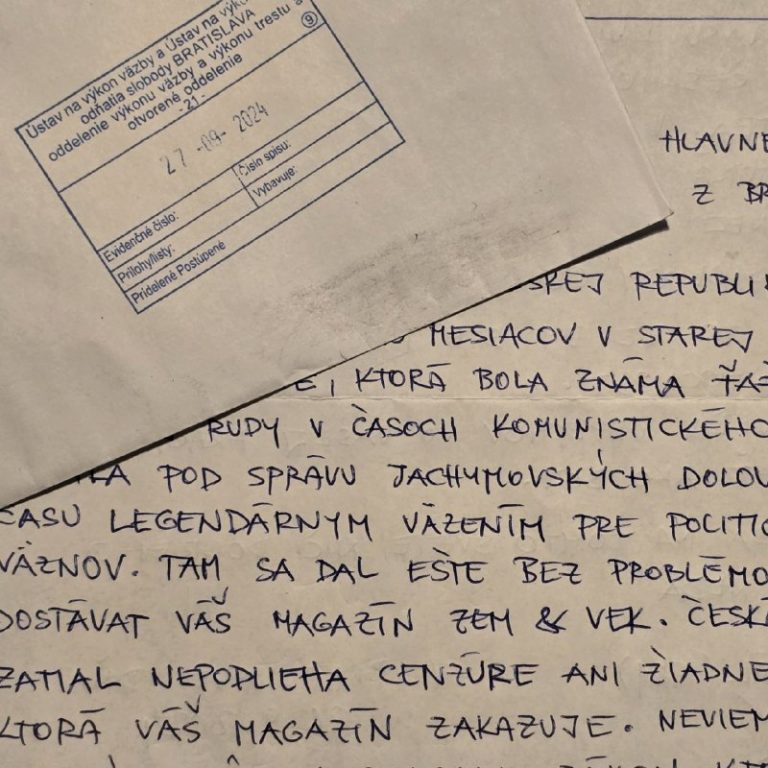 Ústav na výkon väzby a Ústav na výko
odňatia slobody BRATISLAVA
oddelenie výkonu väzby a výkonu trestu a
otvorené oddelenie
-21-
9
27-09-2024
Číslo spisu:
Evidenčné číslo:
Vybavuje:
Prílohy/listy:
Pridelené Postúpené
HLAVNE
Z BR
SKEJ REPUBLI
MESIACOV V STAREJ
E, KTORÁ BOLA ZNÁMA ŤAŽ
RUDY V ČASOCH KOMUNISTICKÉHO
LA POD SPRÁVU JACHYMOVSKÝCH DOLOV
ČASU LEGENDÁRNYM VÄZENÍM PRE POLITIC
VÄZNOV. TAM SA DAL EŠTE BEZ PROBLÉMO
DOSTÁVAT VÁŠ MAGAZÍN ZEM & VEK. ČESKÁ
ZATIAL NEPODLIEHA CENZÚRE ANI ŽIADNE
KTORÁ VÁŠ MAGAZÍN ZAKAZUJE. NEVIEM